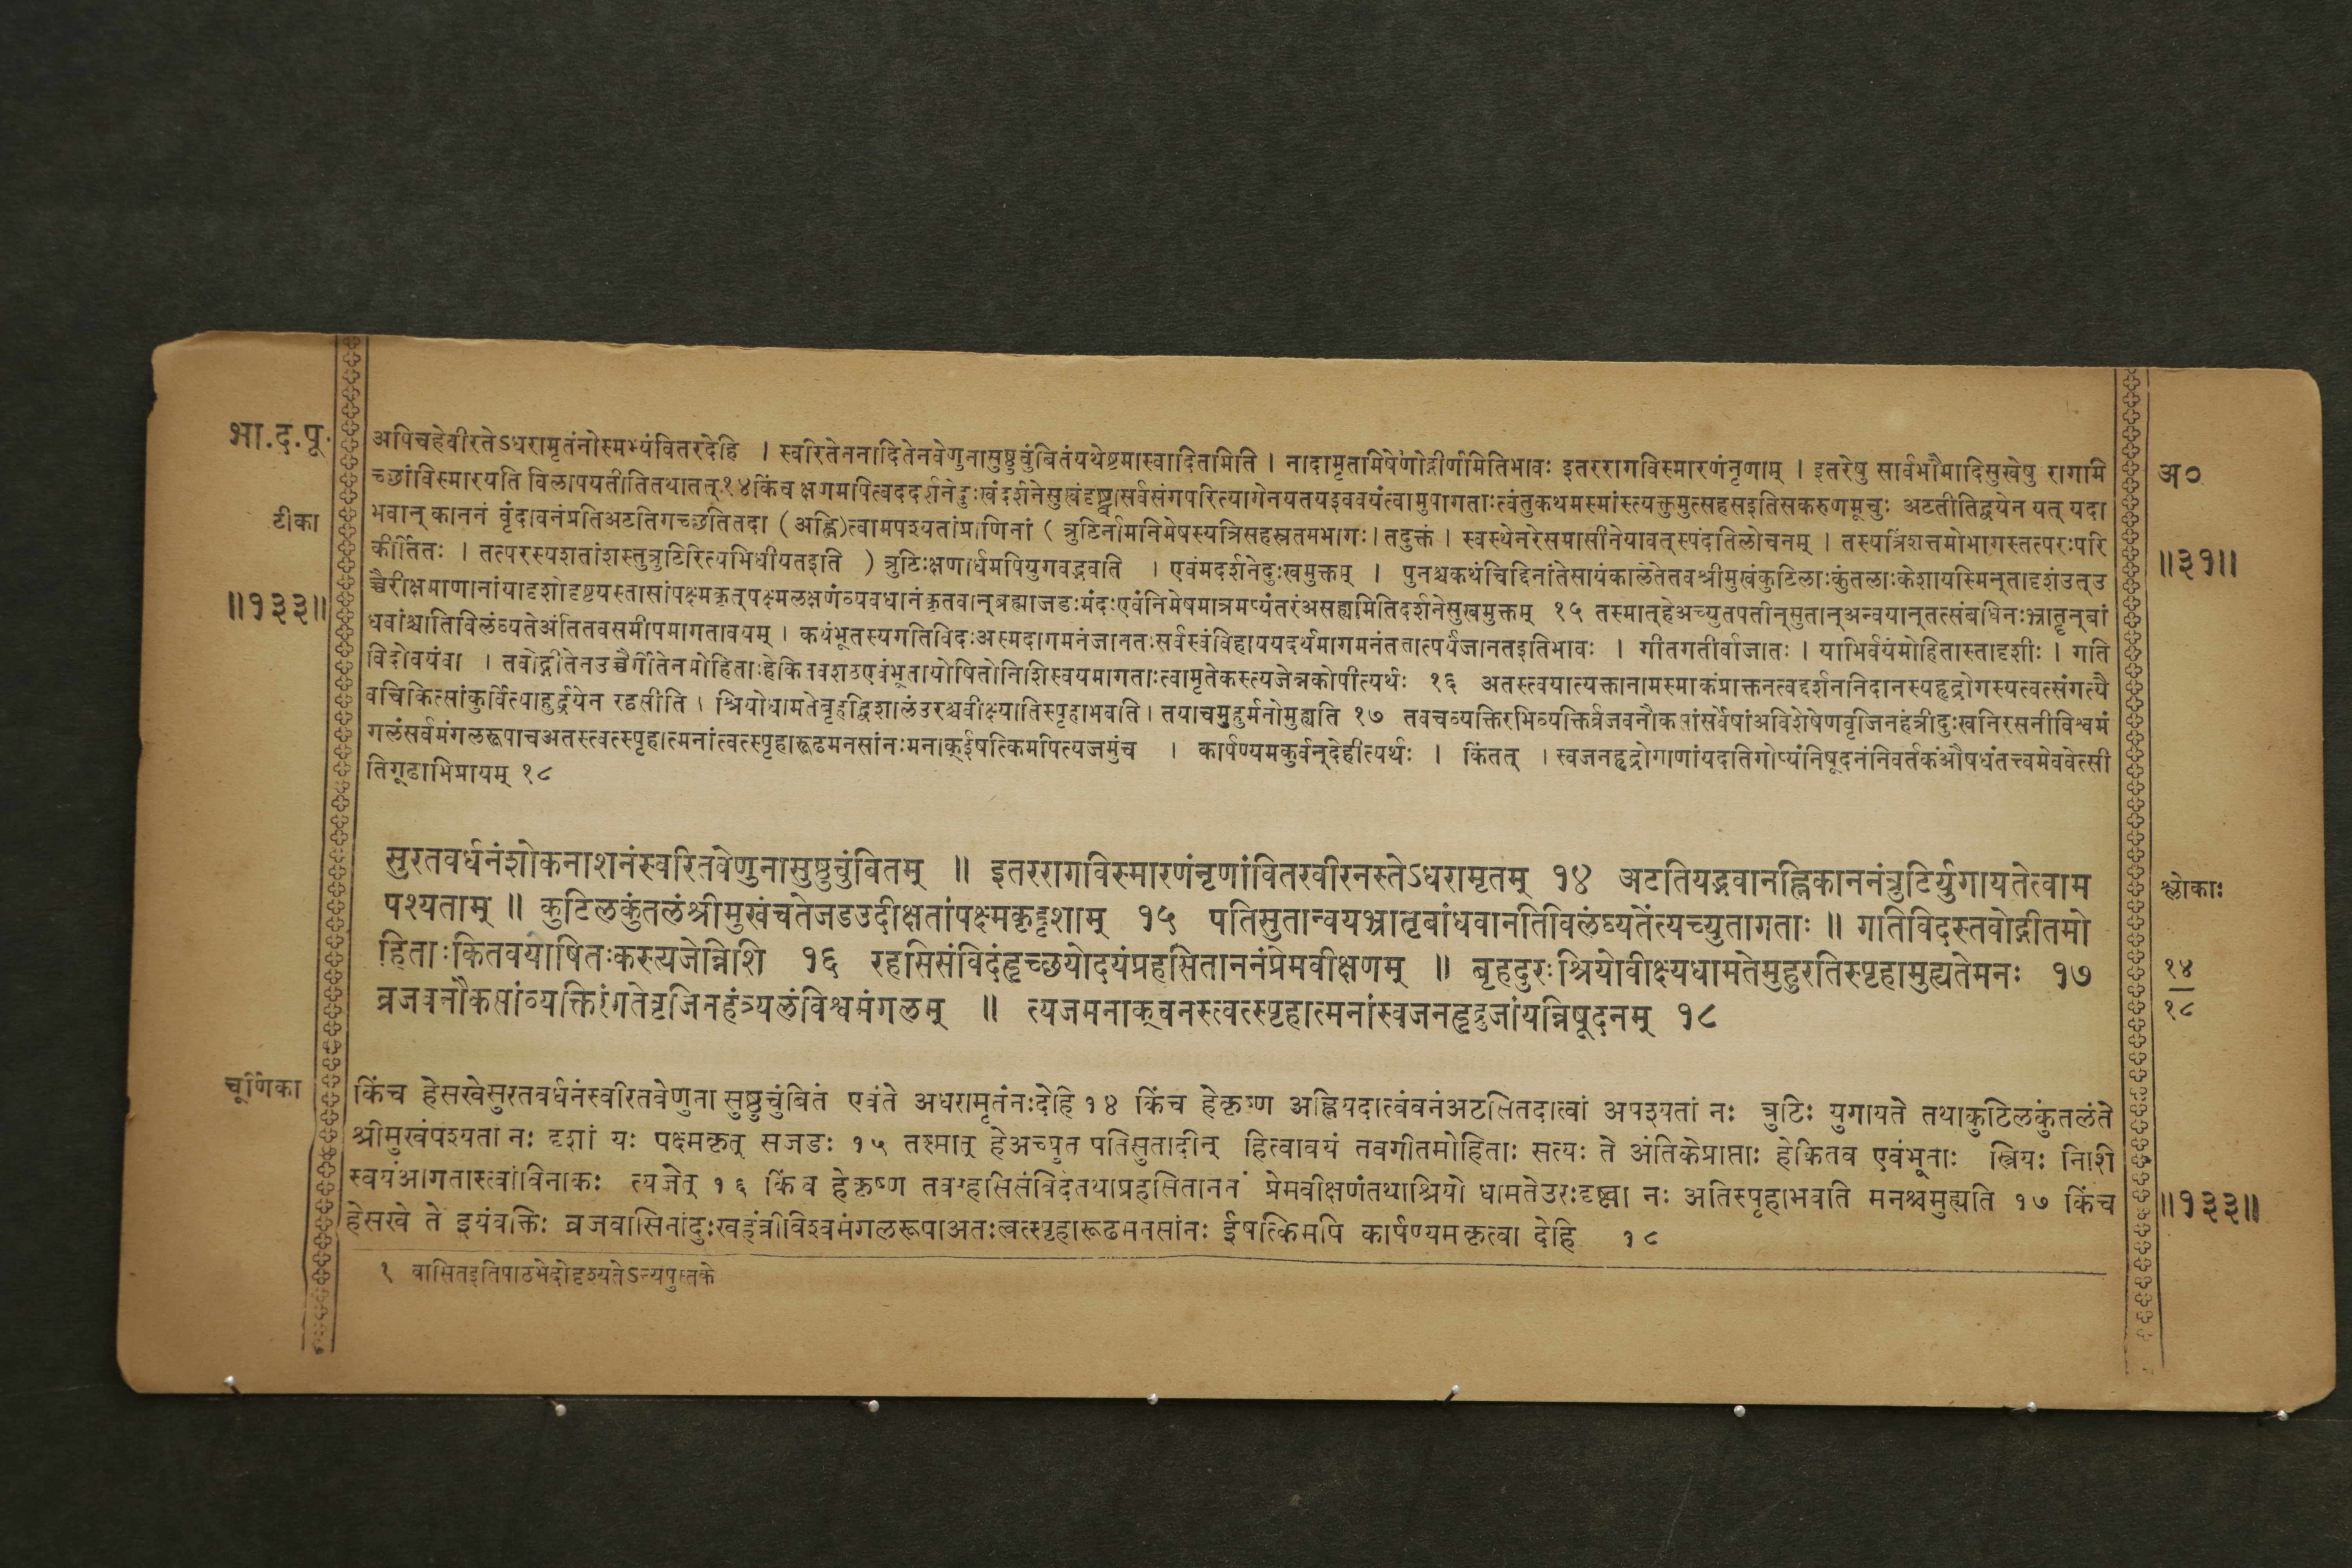 भा.द.पू.
टीका
॥१३३॥
अपिचहेवीरतेऽधरामृतंनोस्मभ्यंवितरदेहि । स्वरितेननादितेनवेणुनासुष्ठुचुंबितंयथेष्टमास्वादितमिति । नादामृतामिषेणोद्गीर्णमितिभावः इतररागविस्मारणंनृणाम् । इतरेषु सार्वभौमादिसुखेषु रागामि
च्छांविस्मारयति विलापयतीतितथातत् १४ किंच क्षणमपित्वददर्शनेदुःखंदर्शनेसुखंदृष्ट्वासर्वसंगपरित्यागेनयतयइववयंत्वामुपागताःत्वंतुकथमस्मांस्त्यक्तुमुत्सहसइतिसकरुणमूचुः अटतीतिद्वयेन यत् यदा
भवान् काननं वृंदावनंप्रतिअटतिगच्छतितदा (अह्नि)त्वामपश्यतांप्राणिनां ( त्रुटिर्नामनिमेषस्यत्रिसहस्रतमभागः। तदुक्तं । स्वस्थेनरेसमासीनेयावत्स्पंदतिलोचनम् । तस्यत्रिंशत्तमोभागस्तत्परःपरि
कीर्तितः । तत्परस्यशतांशस्तुत्रुटिरित्यभिधीयतइति ) त्रुटिःक्षणार्धमपियुगवद्भवति । एवमदर्शनेदुःखमुक्तम् । पुनश्चकथंचिद्दिनांतेसायंकालेतेतवश्रीमुखंकुटिलाःकुंतलाःकेशायस्मिन्तादृशंउत्उ
च्चैरीक्षमाणानांयादृशोदृष्टयस्तासांपक्ष्मकृत्पक्ष्मलक्षणंव्यवधानंकृतवान्ब्रह्माजडःमंदःएवंनिमेषमात्रमप्यंतरंअसह्यमितिदर्शनेसुखमुक्तम् १५ तस्मात्हेअच्युतपतीन्सुतान्अन्वयान्तत्संबंधिनःभ्रातॄन्बां
धवांश्चातिविलंघ्यतेअंतितवसमीपमागतावयम् । कथंभूतस्यगतिविदःअस्मदागमनंजानतःसर्वस्वंविहाययदर्थमागमनंततात्पर्यंजानतइतिभावः । गीतगतीर्वाजातः । याभिर्वयंमोहितास्तादृशीः । गति
विदोवयंवा । तवोद्गीतेनउच्चैर्गीतेनमोहिताःहेकितवशठएवंभूतायोषितोनिशिस्वयमागताःत्वामृतेकस्त्यजेन्नकोपीत्यर्थः १६ अतस्त्वयात्यक्तानामस्माकंप्राक्तनत्वद्दर्शननिदानस्यहृद्रोगस्यत्वत्संगत्यै
वचिकित्सांकुर्वित्याहुर्द्वयेन रहसीति । श्रियोधामतेबृहद्विशालंउरश्चवीक्ष्यातिस्पृहाभवति। तयाचमुहुर्मनोमुह्यति १७ तवचव्यक्तिरभिव्यक्तिर्व्रजवनौकसांसर्वेषांअविशेषेणवृजिनहंत्रीदुःखनिरसनीविश्वमं
गलंसर्वमंगलरूपाचअतस्त्वत्स्पृहात्मनांत्वत्स्पृहारूढमनसांनःमनाक्ईषत्किमपित्यजमुंच । कार्पण्यमकुर्वन्देहीत्यर्थः । किंतत् । स्वजनहृद्रोगाणांयदतिगोप्यंनिषूदनंनिवर्तकंऔषधंतत्त्वमेववेत्सी
तिगूढाभिप्रायम् १८
सुरतवर्धनंशोकनाशनंस्वरितवेणुनासुष्ठुचुंबितम् ॥ इतररागविस्मारणंनृणांवितरवीरनस्तेऽधरामृतम् १४ अटतियद्भवानह्निकाननंत्रुटिर्युगायतेत्वाम
पश्यताम् ॥ कुटिलकुंतलंश्रीमुखंचतेजडउदीक्षतांपक्ष्मकृद्दृशाम् १५ पतिसुतान्वयभ्रातृबांधवानतिविलंघ्यतेंत्यच्युतागताः ॥ गतिविदस्तवोद्गीतमो
हिताःकितवयोषितःकस्त्यजेन्निशि १६ रहसिसंविदंहृच्छयोदयंप्रहसिताननंप्रेमवीक्षणम् ॥ बृहदुरःश्रियोवीक्ष्यधामतेमुहुरतिस्पृहामुह्यतेमनः १७
व्रजवनौकसांव्यक्तिरंगतेवृजिनहंत्र्यलंविश्वमंगलम् ॥ त्यजमनाक्चनस्त्वत्स्पृहात्मनांस्वजनहृद्रुजांयन्निषूदनम् १८
चूर्णिका
किंच हेसखेसुरतवर्धनंस्वरितवेणुना सुष्ठुचुंबितं एवंते अधरामृतंनःदेहि १४ किंच हेकृष्ण अह्नियदात्वंवनंअटसितदात्वां अपश्यतां नः त्रुटिः युगायते तथाकुटिलकुंतलंते
श्रीमुखंपश्यतां नः दृशां यः पक्ष्मकृत् सजडः १५ तस्मात् हेअच्युत पतिसुतादीन् हित्वावयं तवगीतमोहिताः सत्यः ते अंतिकेप्राप्ताः हेकितव एवंभूताः स्त्रियः निशि
स्वयंआगतास्त्वांविनाकः त्यजेत् १६ किंच हेकृष्ण तवरहसिसंविदंतथाप्रहसिताननं प्रेमवीक्षणंतथाश्रियो धामतेउरःदृष्ट्वा नः अतिस्पृहाभवति मनश्चमुह्यति १७ किंच
हेसखे ते इयंव्यक्तिः व्रजवासिनांदुःखहंत्रीविश्वमंगलरूपाअतःत्वत्स्पृहारूढमनसांनः ईषत्किमपि कार्पण्यमकृत्वा देहि १८
१ वासितइतिपाठभेदोदृश्यतेऽन्यपुस्तके
अ०
॥३१॥
श्लोकाः
१४
१८
॥१३३॥